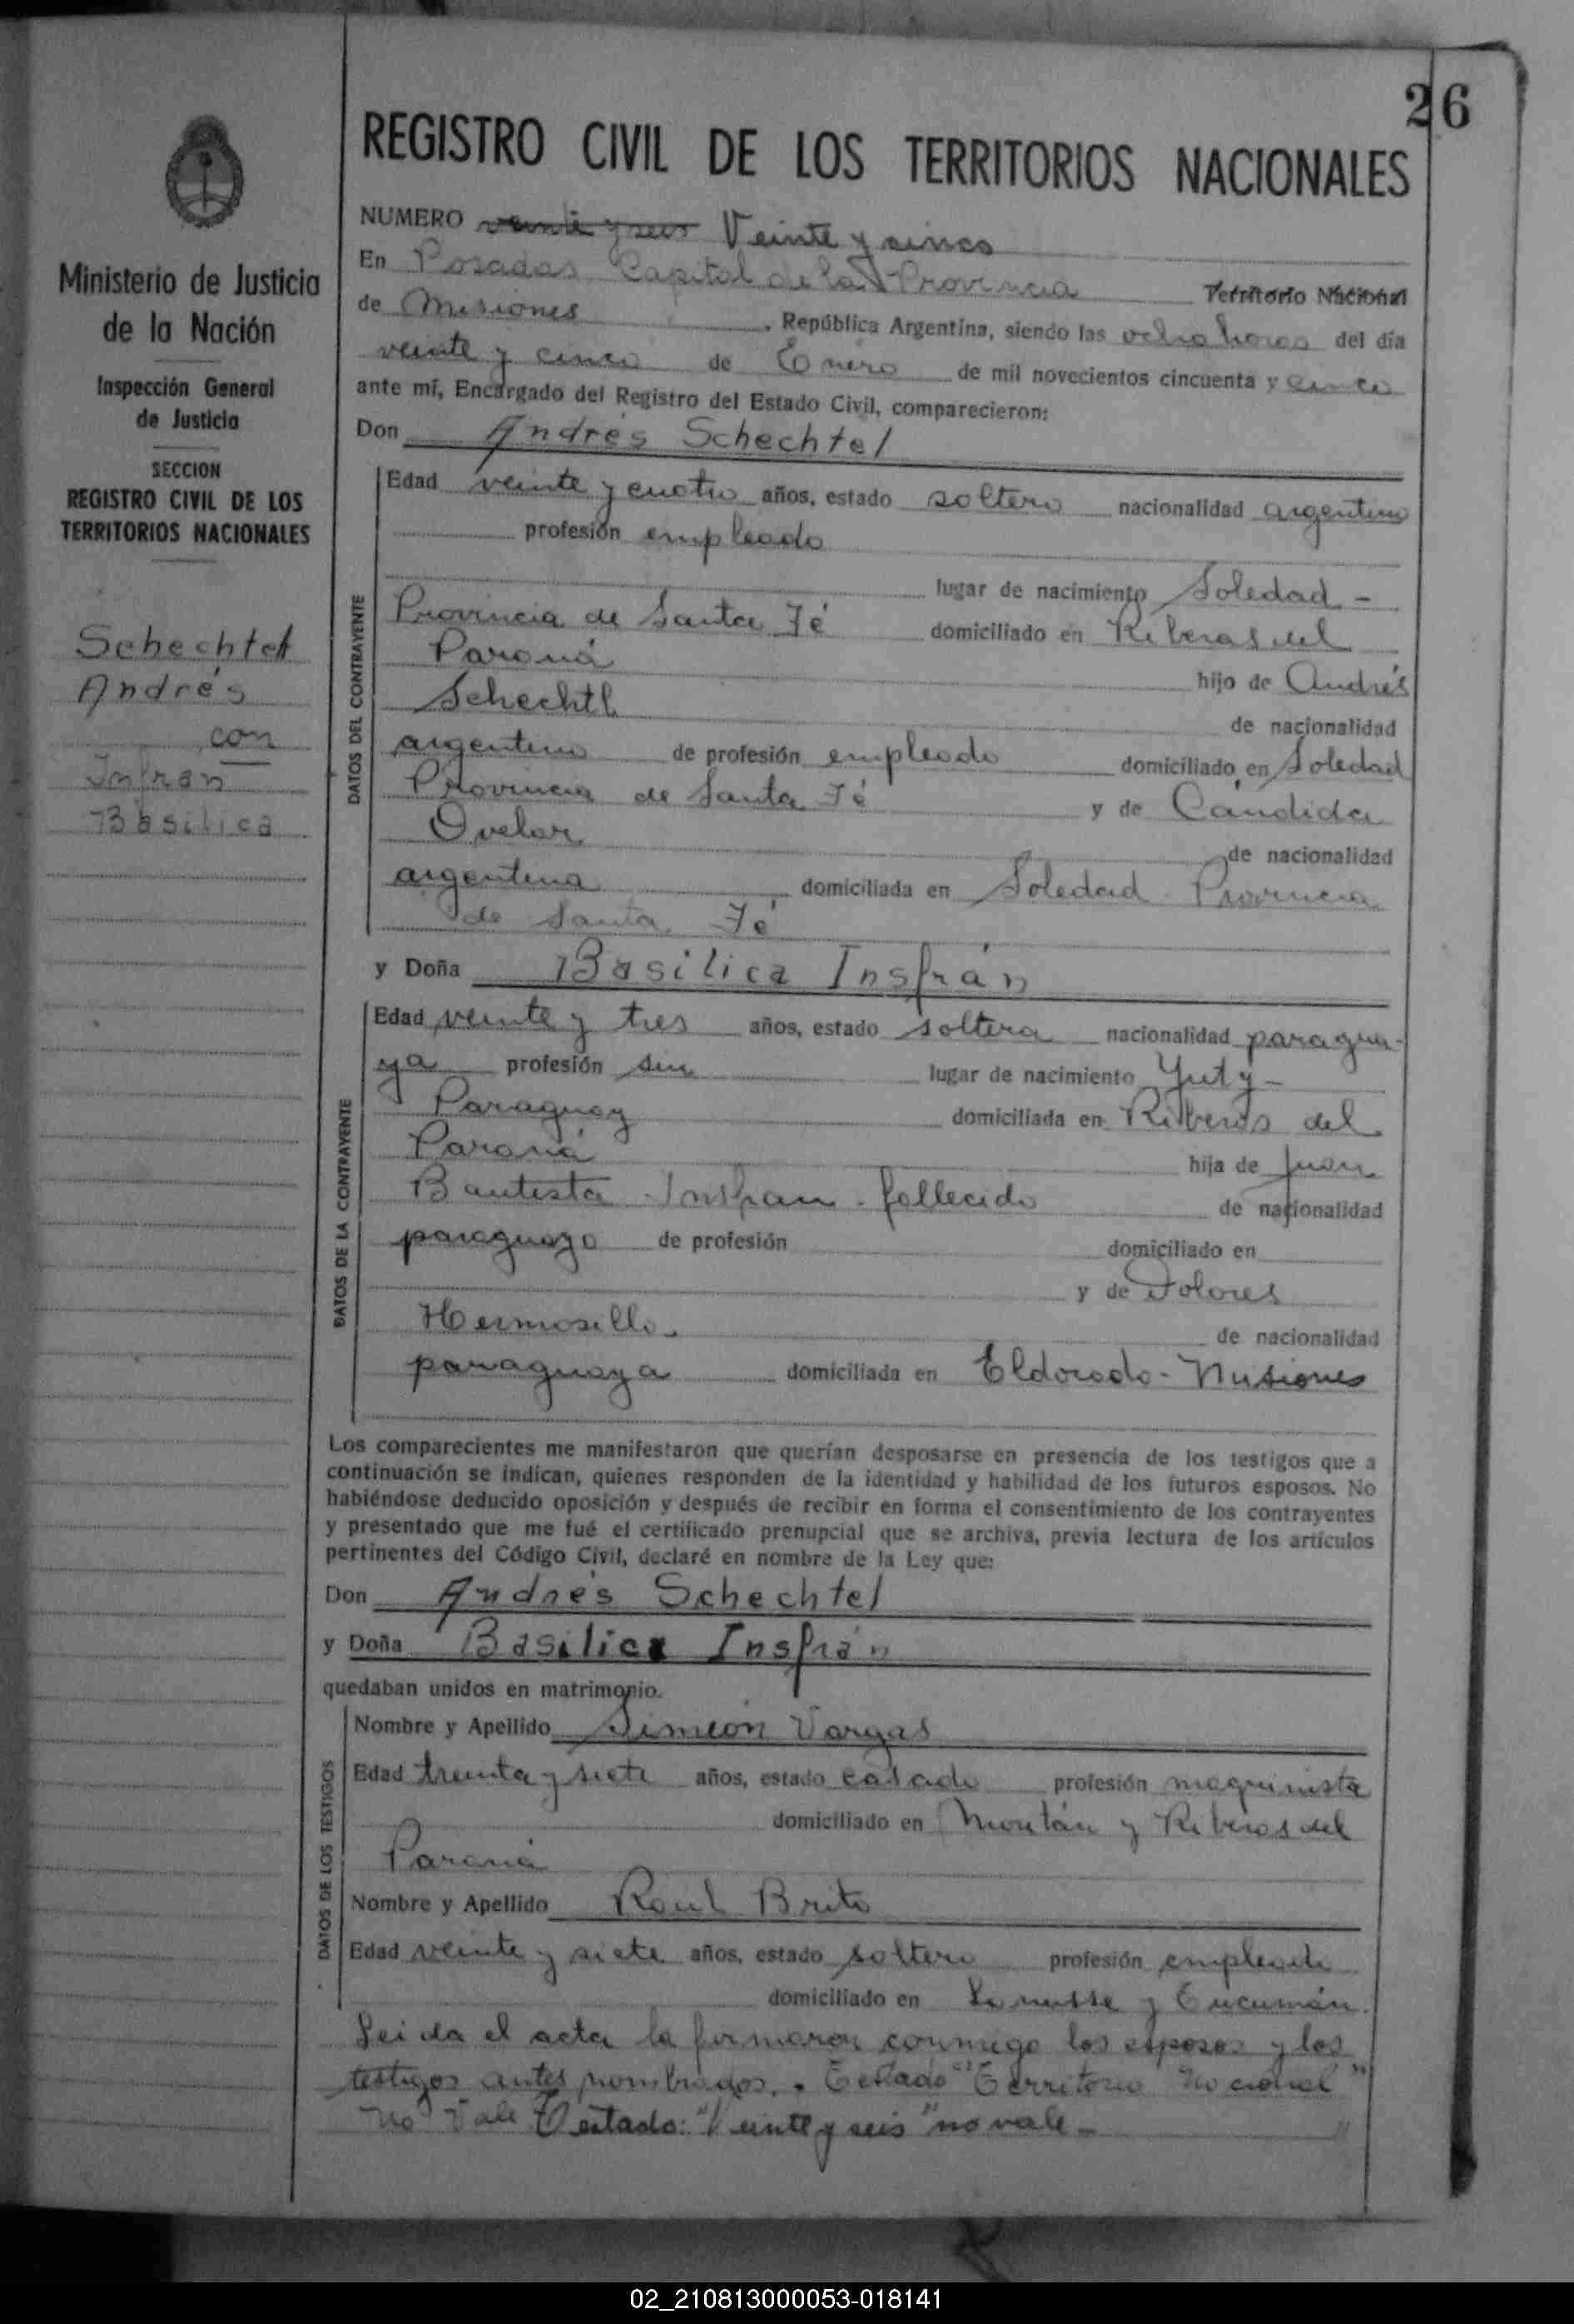 26
REGISTRO CIVIL DE LOS TERRITORIOS NACIONALES
Ministerio de Justicia
de la Nación
Inspección General
de Justicia
SECCION
REGISTRO CIVIL DE LOS
TERRITORIOS NACIONALES
Schechtel
Andrés
con
Infran
Basilica
NUMERO veinte y seis Veinte y cinco
En Posadas Capital de la Provincia Territorio Nacional
de Misiones , República Argentina, siendo las ocho horas del día
veinte y cinco de Enero de mil novecientos cincuenta y cinco
ante mí, Encargado del Registro del Estado Civil, comparecieron:
Don Andrés Schechtel
DATOS DEL CONTRAYENTE
Edad veinte y cuatro años, estado soltero nacionalidad argentino
profesión empleado
lugar de nacimiento Soledad -
Provincia de Santa Fé domiciliado en Riberas del
Paraná hijo de Andrés
Schechtl de nacionalidad
argentino de profesión empleado domiciliado en Soledad
Provincia de Santa Fé y de Cándida
Ovelar de nacionalidad
argentina domiciliada en Soledad - Provincia
de Santa Fé
y Doña Basilica Insfrán
DATOS DE LA CONTRAYENTE
Edad veinte y tres años, estado soltera nacionalidad paragua-
ya profesión sin lugar de nacimiento Yuty -
Paraguay domiciliada en Riberas del
Paraná hija de Juan
Bautista Insfran - fallecido de nacionalidad
paraguayo de profesión domiciliado en
y de Dolores
Hermosilla de nacionalidad
paraguaya domiciliada en Eldorado - Misiones
Los comparecientes me manifestaron que querían desposarse en presencia de los testigos que a
continuación se indican, quienes responden de la identidad y habilidad de los futuros esposos. No
habiéndose deducido oposición y después de recibir en forma el consentimiento de los contrayentes
y presentado que me fué el certificado prenupcial que se archiva, previa lectura de los artículos
pertinentes del Código Civil, declaré en nombre de la Ley que:
Don Andrés Schechtel
y Doña Basilica Insfrán
quedaban unidos en matrimonio.
DATOS DE LOS TESTIGOS
Nombre y Apellido Simeón Vargas
Edad treinta y siete años, estado casado profesión maquinista
domiciliado en y Riberas del
Paraná
Nombre y Apellido Raúl Brito
Edad veinte y siete años, estado soltero profesión empleado
domiciliado en Lanusse y Tucumán.
Leida el acta la firmaron conmigo los esposos y los
testigos antes nombrados. - Testado "Territorio Nacional"
No Vale Testado: "Veinte y seis" no vale -
02_210813000053-018141